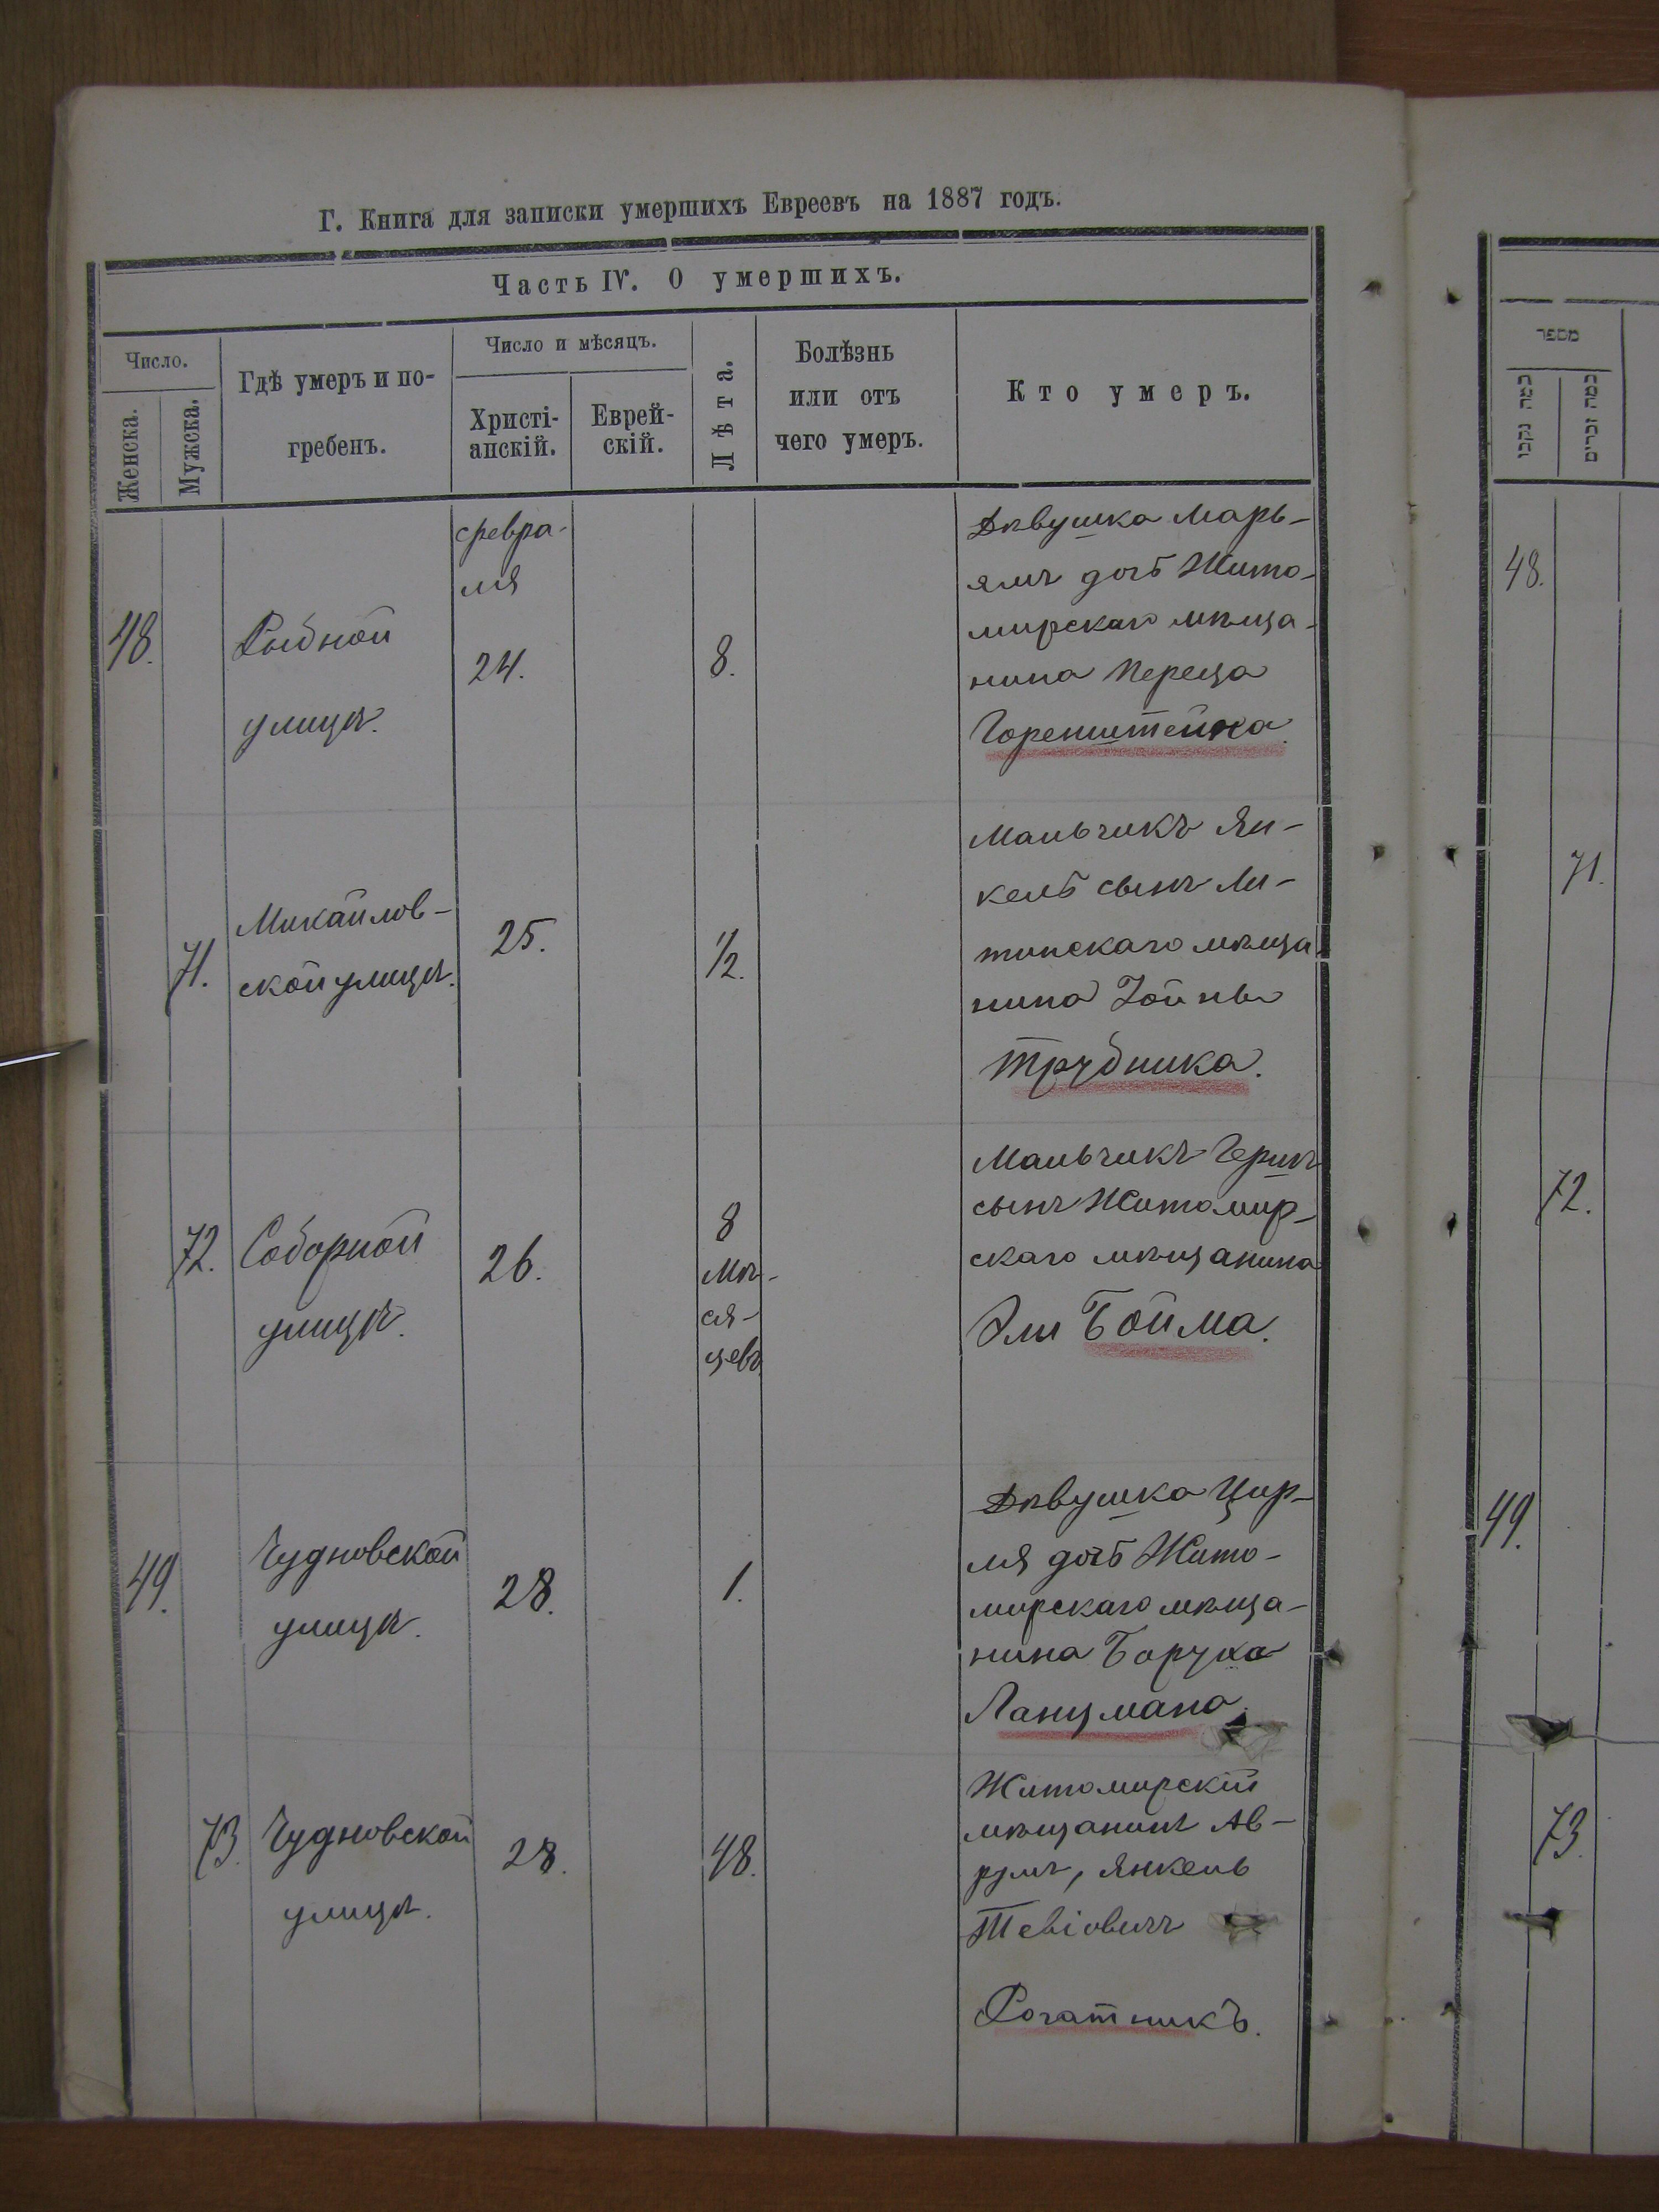 Г. Книга для записки умершихъ Евреевъ на 1887 годъ.
Часть IV. О умершихъ.
Число.
Женска.
Мужска.
Гдѣ умеръ и по-
гребенъ.
Число и мѣсяцъ.
Христі-
анскій.
Еврей-
скій.
Лѣта.
Болѣзнь
или отъ
чего умеръ.
Кто умеръ.
48.
Рыбной
улицѣ.
февра-
ля
24.
8.
Дѣвушка Марь-
ямъ дочь Жито-
мирскаго мѣща-
нина Переца
Горенштейна.
71.
Михайлов-
ской улицѣ.
25.
1/2.
Мальчикъ Ян-
кель сынъ Ли-
тинскаго мѣща
нина Зойнвы
Трубника.
72.
Соборной
улицѣ.
26.
8
Мѣ-
ся-
цевъ
Мальчикъ Гершъ
сынъ Житомир-
скаго мѣщанина
Эли Бойма.
49.
Чудновской
улицѣ.
28.
1.
Дѣвушка Цир-
ля дочь Жито-
мирскаго мѣща-
нина Боруха
Ланцмана.
73.
Чудновской
улицѣ.
28.
48.
Житомирскій
мѣщанинъ Ав-
румъ, Янкель
Тевіовичъ
Рогатникъ.
מספר
כמה נקבו
כמה זכרים
48.
71.
72.
49.
73.